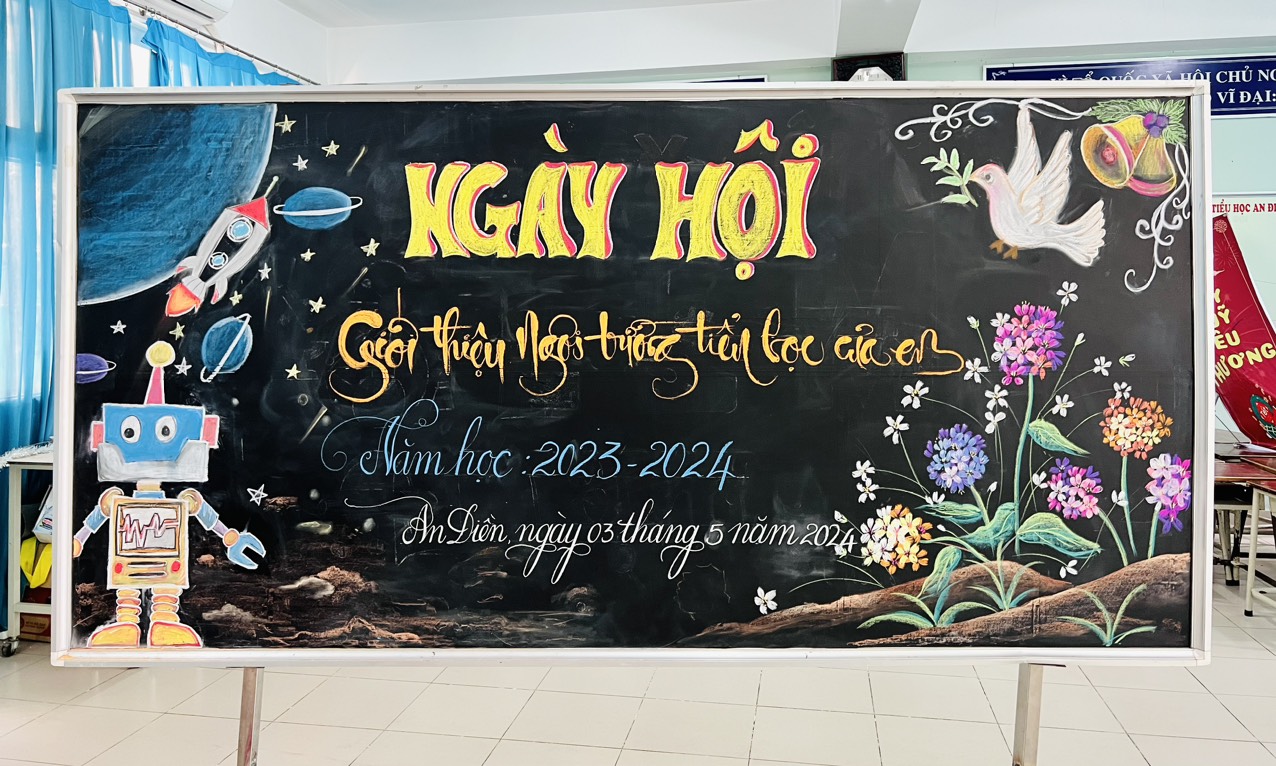 NGÀY HỘI
Giới thiệu Ngôi trường tiểu học của em
Năm học : 2023 - 2024
An Điền, ngày 03 tháng 5 năm 2024
TỔ QUỐC XÃ HỘI CHỦ NG
VĨ ĐẠI:
TIỂU HỌC AN ĐI